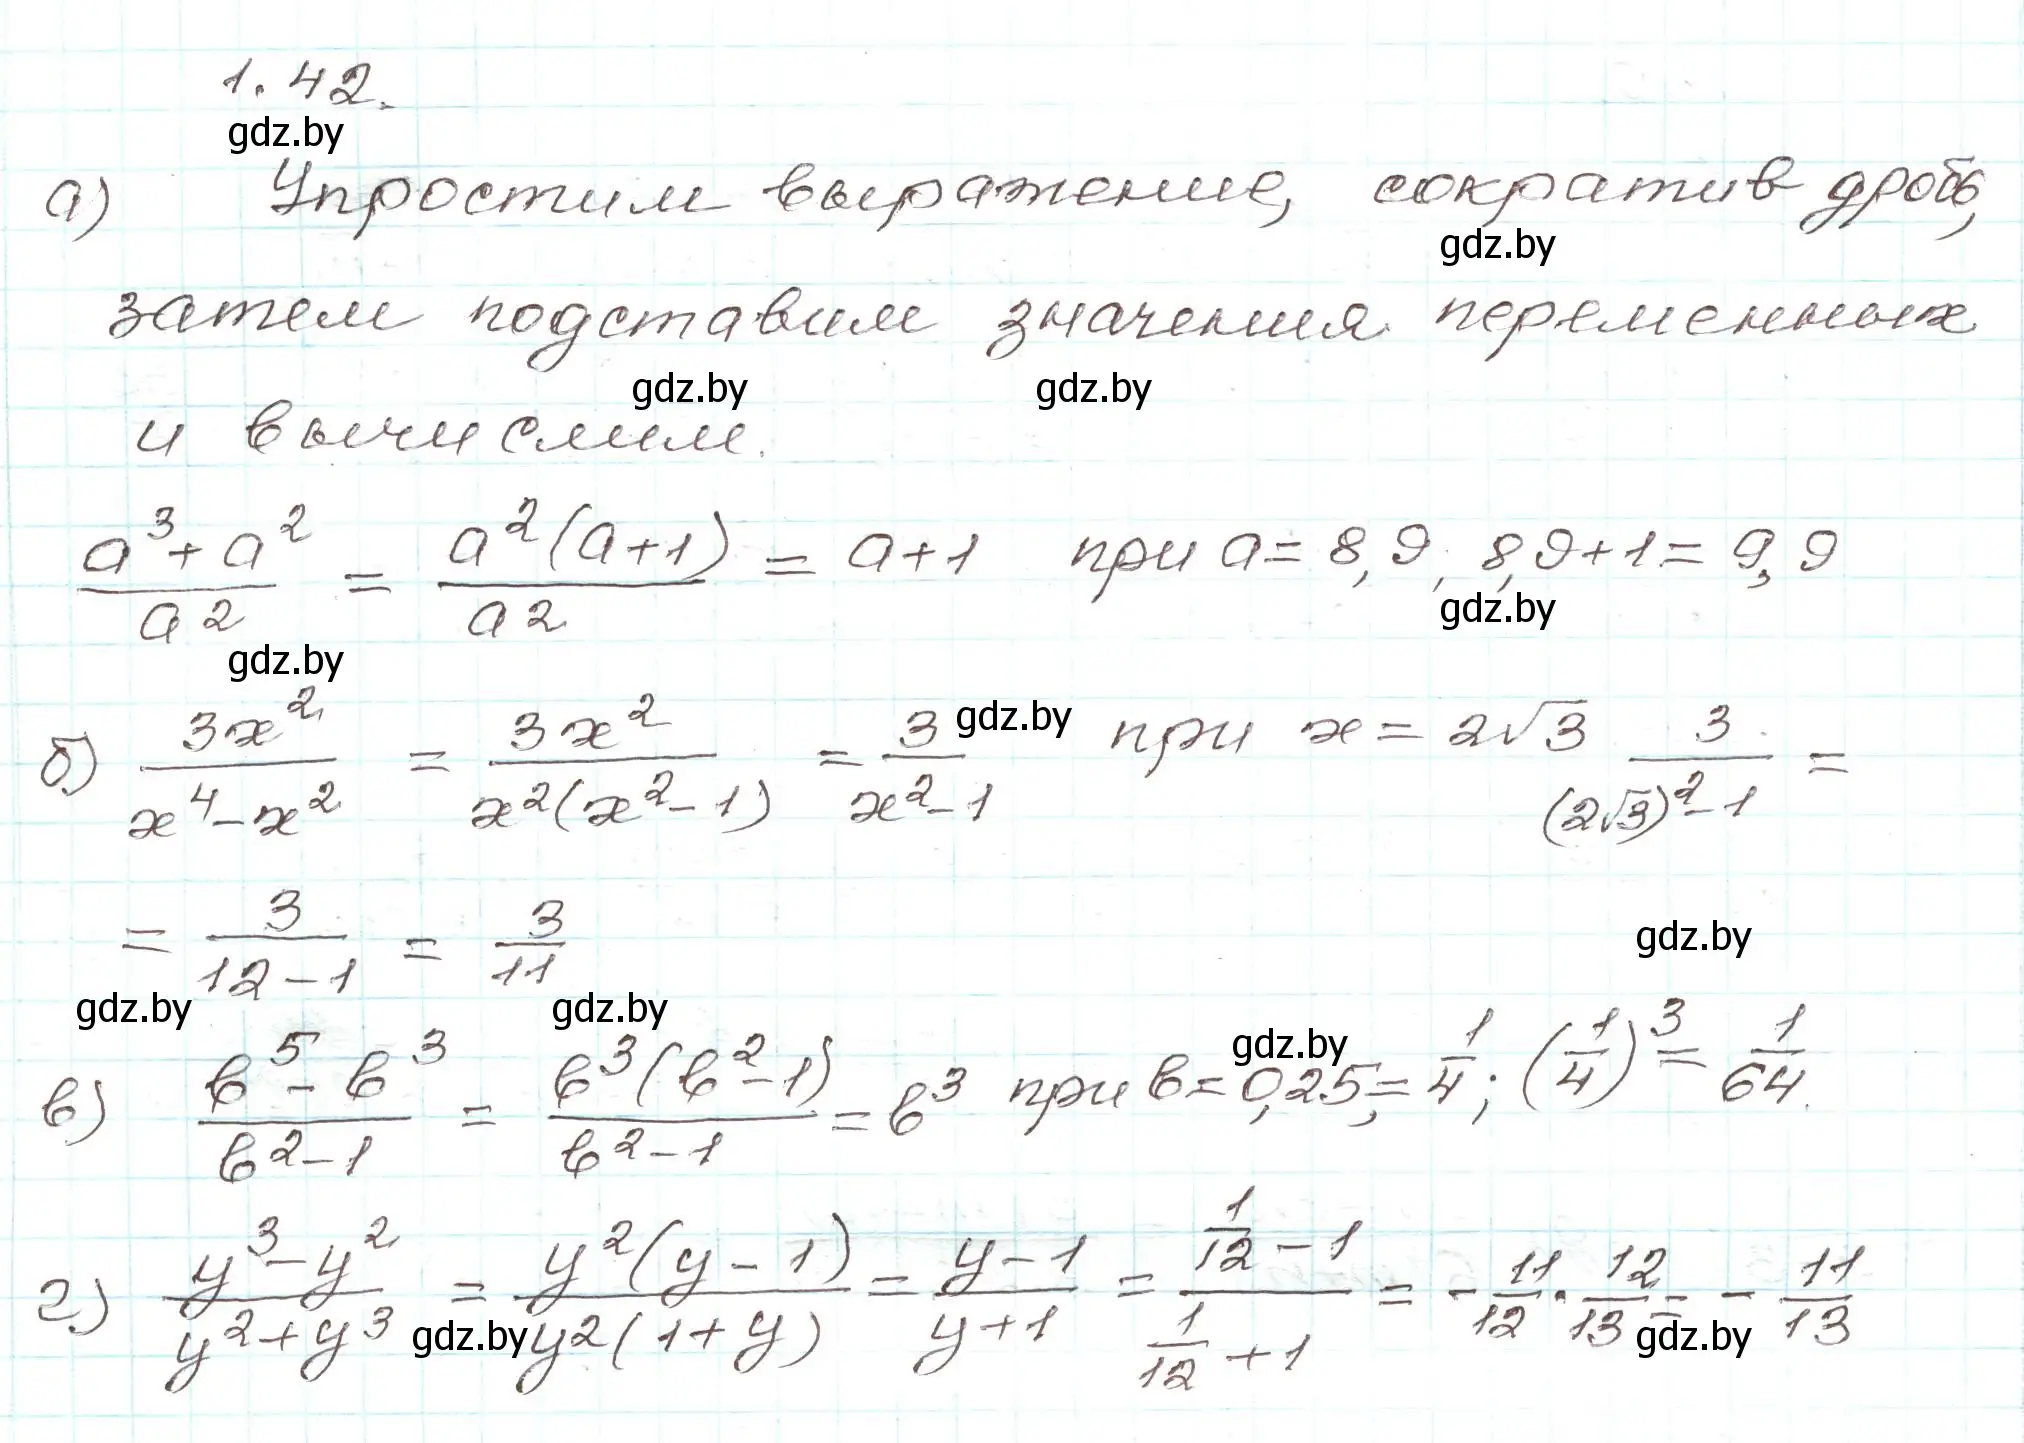 1.42.
gdz.by
а) Упростим выражение, сократив дробь,
gdz.by
затем подставим значения переменных
gdz.by gdz.by
и вычислим.
(a³+a²)/a² = a²(a+1)/a² = a+1 при a=8,9; 8,9+1=9,9
gdz.by gdz.by
б) 3x²/(x⁴-x²) = 3x²/(x²(x²-1)) = 3/(x²-1) gdz.by при x=2√3 3/((2√3)²-1) =
= 3/(12-1) = 3/11
gdz.by
gdz.by gdz.by gdz.by
в) (в⁵-в³)/(в²-1) = в³(в²-1)/(в²-1) = в³ при в=0,25;=1/4; (1/4)³=1/64.
г.) (y³-y²)/(y²+y³) = y²(y-1)/(y²(1+y)) = (y-1)/(y+1) = (1/12-1)/(1/12+1) = -11/12·12/13=-11/13
gdz.by gdz.by